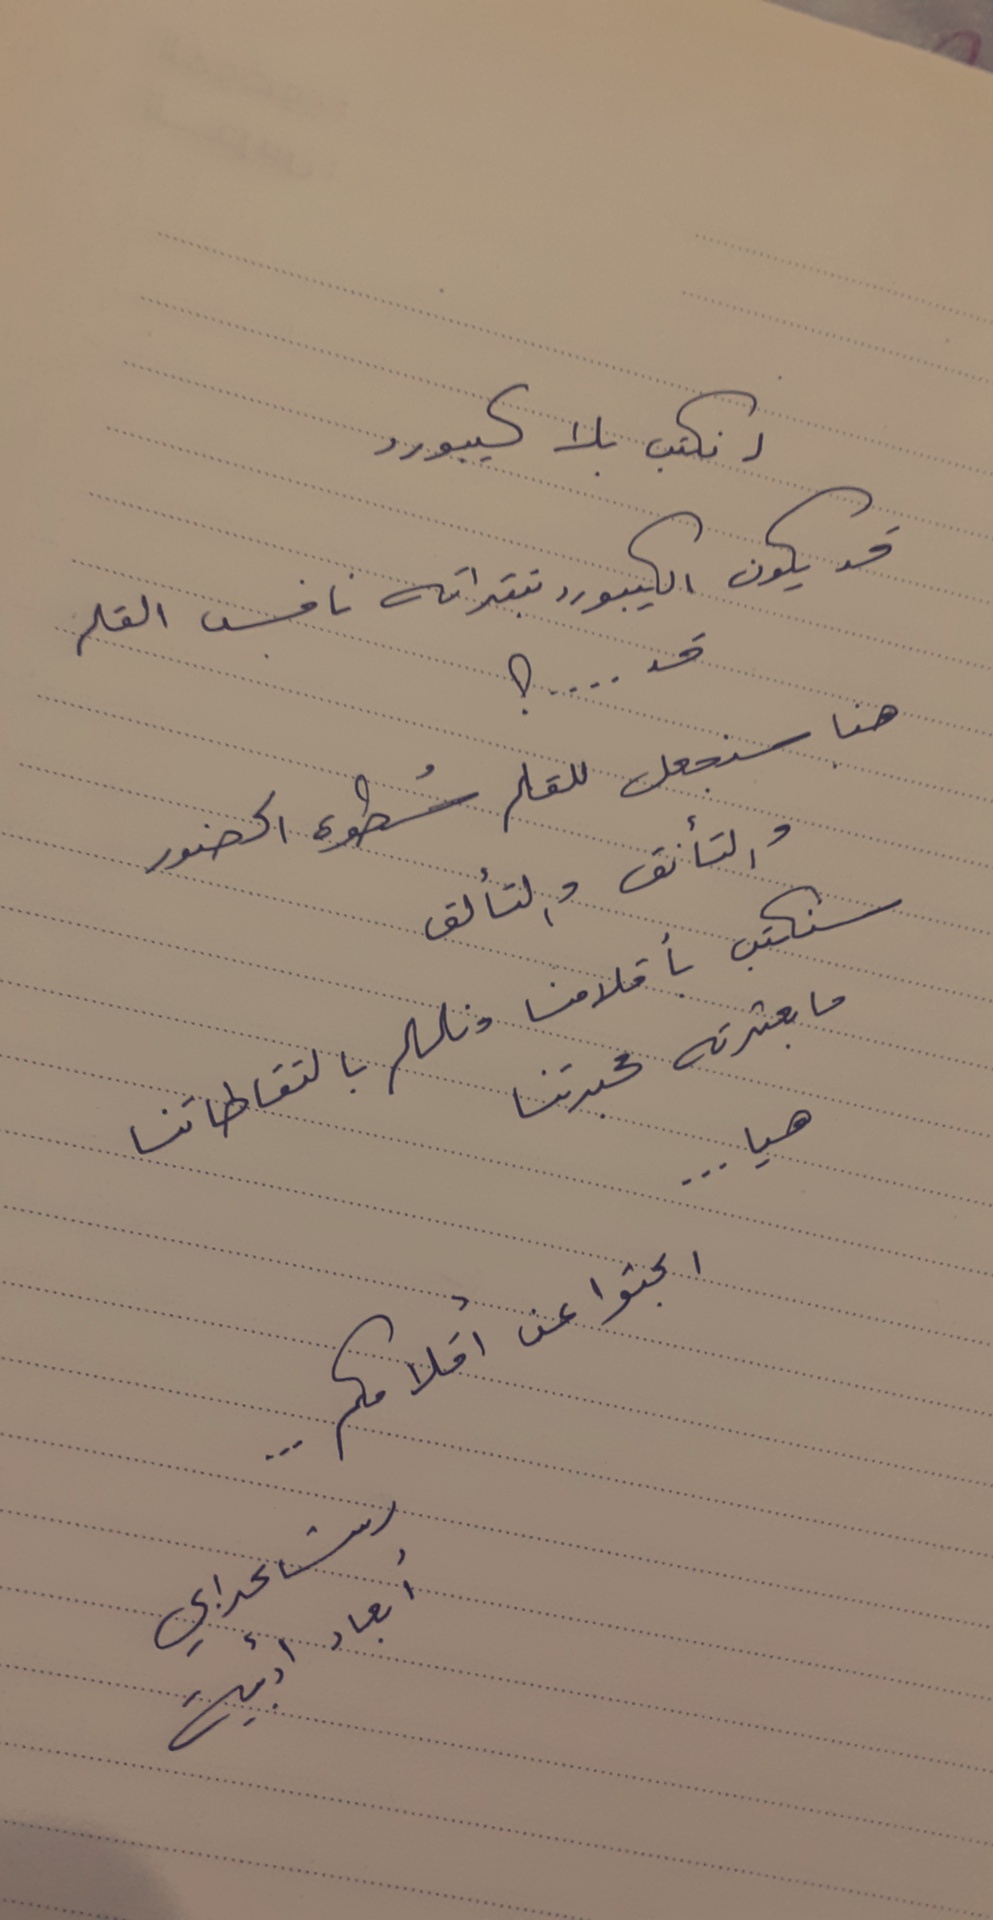 لنكتب بلا كيبورد
قد يكون الكيبورد بنقراته نافس القلم
قد ....؟
هنا سنجعل للقلم سُطوة الحضور
والتأنق والتألق
سنكتب بأقلامنا ونلملم بالتقاطاتنا
ما بعثرته محبرتنا
هيا ...
ابحثوا عن أقلامكم ...
رشا
أبعاد أدبية